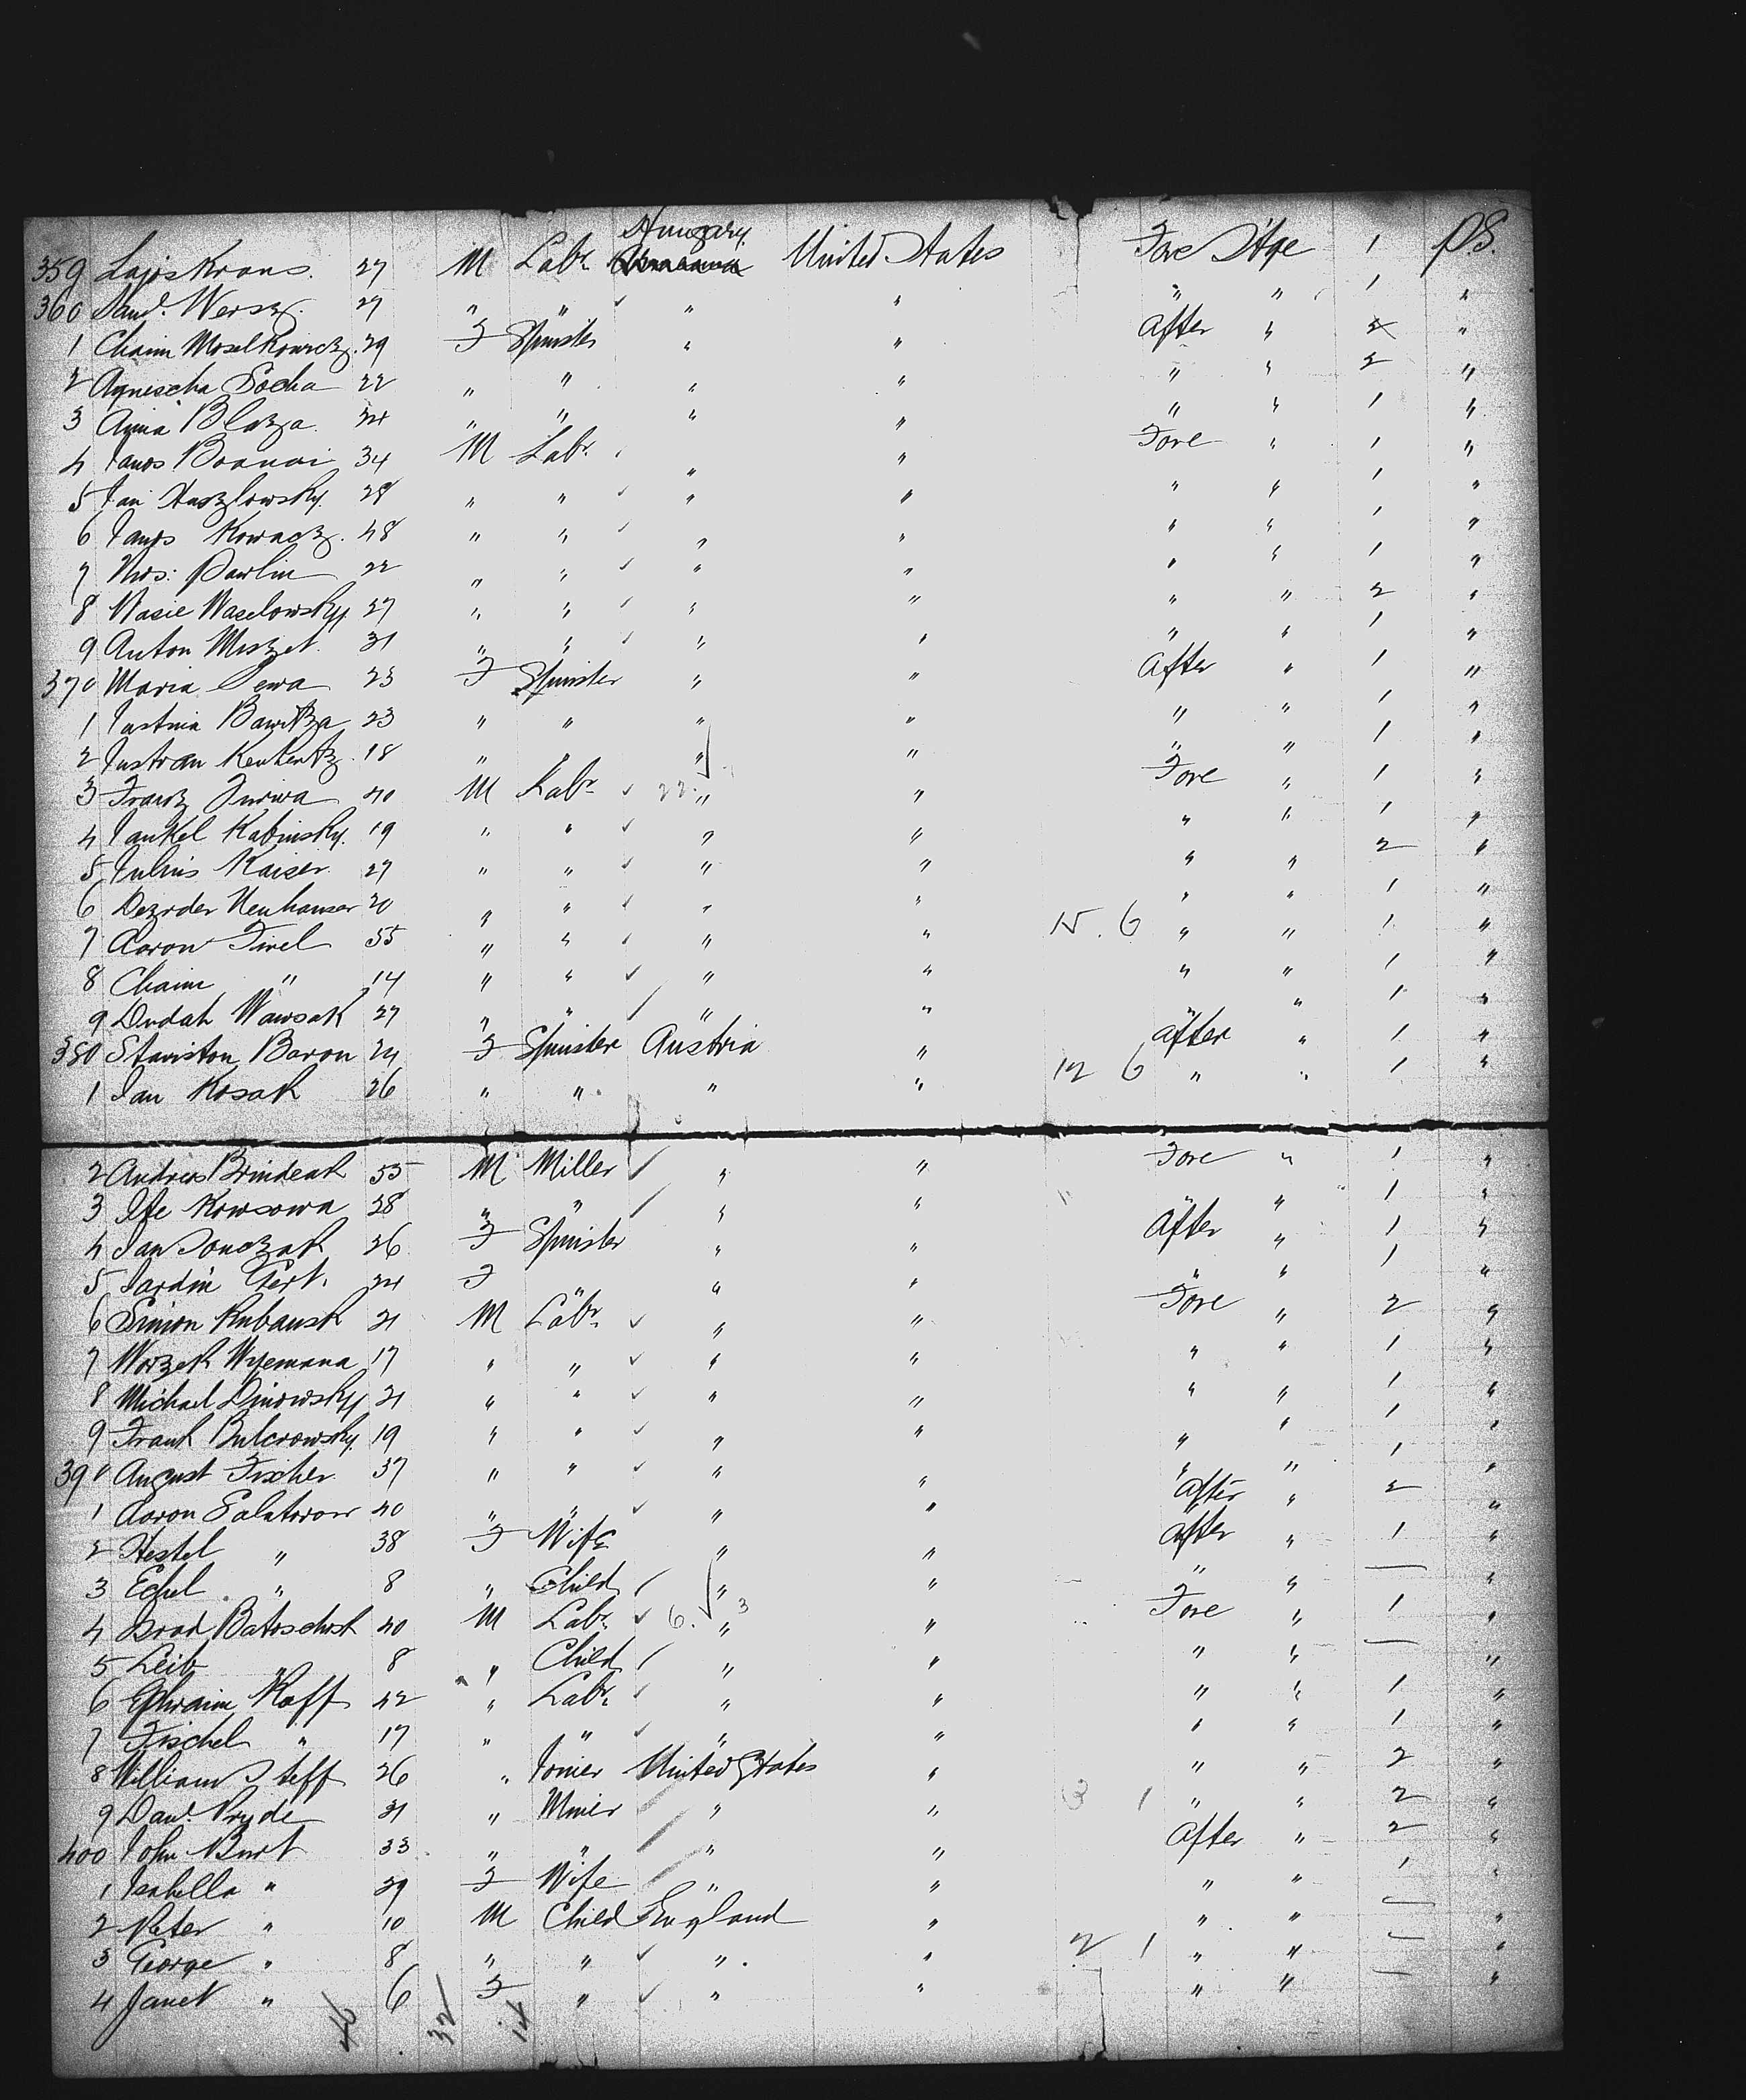 Hungary
359 Lajos Kraus. 27 M Labr. United States Fore Stge 1 P.S.
360 Saml. Wersz. 27 " " ✓ " " " " 1 "
1 Chaim Moselkowicz. 29 F Spinster " " After " 2 "
2 Agnescha Socha 22 " " " " " " 2 "
3 Anna Blazza. 24 " " " " " " 1 "
4 Janos 34 M Labr. " " Fore " 1 "
5 Jan Huszlowsky. 28 " " ✓ " " " " 1 "
6 Janos Kowacz. 48 " " ✓ " " " " 1 "
7 Pawlin 22 " " ✓ " " " " 1 "
8 Wasie Waselowsky 27 " " ✓ " " " " 2 "
9 Anton Miszet. 31 " " ✓ " " " " 1 "
370 Maria 23 F Spinster " " After " 1 "
1 Justina 23 " " " " " " 1 "
2 18 " " " " " " 1 "
3 Franz 40 M Labr. ✓ 22. " " Fore " 1 "
4 Jankel Rabinsky. 19 " " ✓ " " " " 1 "
5 Julius Kaiser. 27 " " ✓ " " " " 2 "
6 Neuhauser 20 " " ✓ " " " " 1 "
7 Aaron Tirel 55 " " ✓ " " 15. 6 " " 1 "
8 Chaim " 14 " " ✓ " " " " 1 "
9 Dudah Wawsak 27 " " / " " " " 1 "
380 Staviston Baron 24 F Spinster Austria " After " 1 "
1 Jan Kosak 26 " " " " 12 6 " " 1 "
2 Andreas Brindeak 55 M Miller / " " Fore " 1 "
3 Ife Kowsowa 28 " " / " " " 1 "
4 Jan Jonczak 26 F Spinster " " After " 1 "
5 Jardin Gert. 24 F " " " " " 1 "
6 Simon Kubansk 21 M Labr. ✓ " " Fore " 2 "
7 Worzek Wyemana 17 " " ✓ " " " " 1 "
8 Michael Dinowsky 21 " " ✓ " " " " 1 "
9 Frank Bulcrowsky. 19 " " ✓ " " " " 1 "
390 August Fischer. 37 " " ✓ " " " " 1 "
1 Aaron 40 " " ✓ " " After " 2 "
2 Hestel " 38 F Wife " " After " 1 "
3 Echel " 8 " Child / " " " " — "
4 40 M Labr. ✓ 6. " 3 " Fore " 1 "
5 Leib " 8 " Child / " " " " — "
6 Ephraim Kaff 42 " Labr. ✓ " " " " 1 "
7 Fischel " 17 " " ✓ " " " " 1 "
8 William Steff 26 " Joiner United States " " " 2 "
9 Davd. Pryde 31 " Miner / " " 3 1 " " 2 "
400 John Burt 33 " " / " " After " 2 "
1 Isabella " 29 F Wife / " " " " 1 "
2 Peter " 10 M Child England " " " — "
3 George " 8 " " ✓ " " 2 1 " " — "
4 Janet " 6 F " ✓ " " " " — "
46 32 14